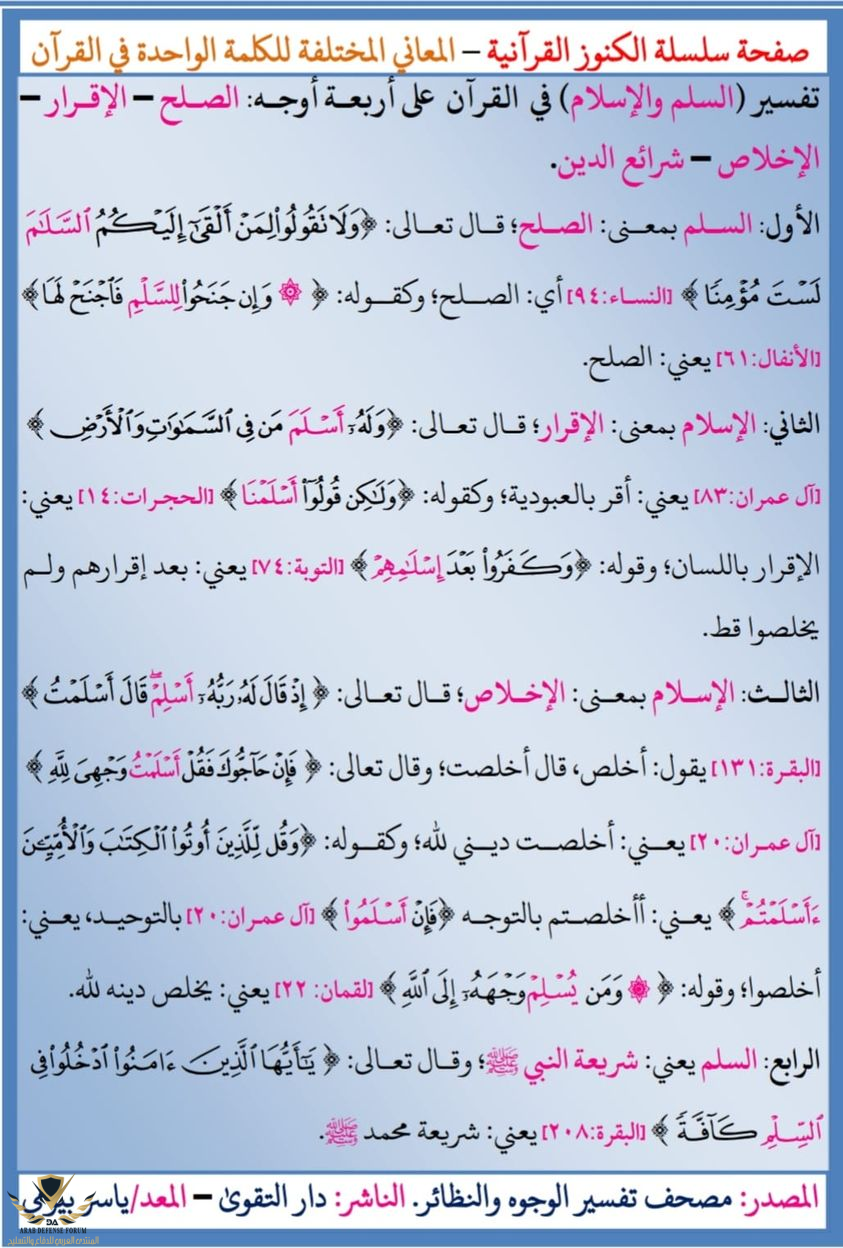 صفحة سلسلة الكنوز القرآنية – المعاني المختلفة للكلمة الواحدة في القرآن
تفسير (السلم والإسلام) في القرآن على أربعة أوجه: الصلح – الإقرار –
الإخلاص – شرائع الدين.
الأول: السلم بمعنى: الصلح؛ قال تعالى: ﴿وَلَا تَقُولُوا۟ لِمَنْ أَلْقَىٰٓ إِلَيْكُمُ ٱلسَّلَـٰمَ
لَسْتَ مُؤْمِنًا﴾ [النساء:٩٤] أي: الصلح؛ وكقوله: ﴿ ۞ وَإِن جَنَحُوا۟ لِلسَّلْمِ فَٱجْنَحْ لَهَا﴾
[الأنفال:٦١] يعني: الصلح.
الثاني: الإسلام بمعنى: الإقرار؛ قال تعالى: ﴿وَلَهُۥٓ أَسْلَمَ مَن فِى ٱلسَّمَـٰوَٰتِ وَٱلْأَرْضِ﴾
[آل عمران:٨٣] يعني: أقر بالعبودية؛ وكقوله: ﴿وَلَـٰكِن قُولُوٓا۟ أَسْلَمْنَا﴾ [الحجرات:١٤] يعني:
الإقرار باللسان؛ وقوله: ﴿وَكَفَرُوا۟ بَعْدَ إِسْلَـٰمِهِمْ﴾ [التوبة:٧٤] يعني: بعد إقرارهم ولم
يخلصوا قط.
الثالث: الإسلام بمعنى: الإخلاص؛ قال تعالى: ﴿إِذْ قَالَ لَهُۥ رَبُّهُۥٓ أَسْلِمْ ۖ قَالَ أَسْلَمْتُ﴾
[البقرة:١٣١] يقول: أخلص، قال أخلصت؛ وقال تعالى: ﴿فَإِنْ حَآجُّوكَ فَقُلْ أَسْلَمْتُ وَجْهِىَ لِلَّهِ﴾
[آل عمران:٢٠] يعني: أخلصت ديني لله؛ وكقوله: ﴿وَقُل لِّلَّذِينَ أُوتُوا۟ ٱلْكِتَـٰبَ وَٱلْأُمِّيِّـۧنَ
ءَأَسْلَمْتُمْ ۚ﴾ يعني: أأخلصتم بالتوجه ﴿فَإِنْ أَسْلَمُوا۟﴾ [آل عمران:٢٠] بالتوحيد، يعني:
أخلصوا؛ وقوله: ﴿ ۞ وَمَن يُسْلِمْ وَجْهَهُۥٓ إِلَى ٱللَّهِ﴾ [لقمان: ٢٢] يعني: يخلص دينه لله.
الرابع: السلم يعني: شريعة النبي ﷺ؛ وقال تعالى: ﴿يَـٰٓأَيُّهَا ٱلَّذِينَ ءَامَنُوا۟ ٱدْخُلُوا۟ فِى
ٱلسِّلْمِ كَآفَّةً﴾ [البقرة:٢٠٨] يعني: شريعة محمد ﷺ.
المصدر: مصحف تفسير الوجوه والنظائر. الناشر: دار التقوىٰ – المعد/ياسر
DA
ARAB DEFENSE FORUM
المنتدى العربي للدفاع والتسليح